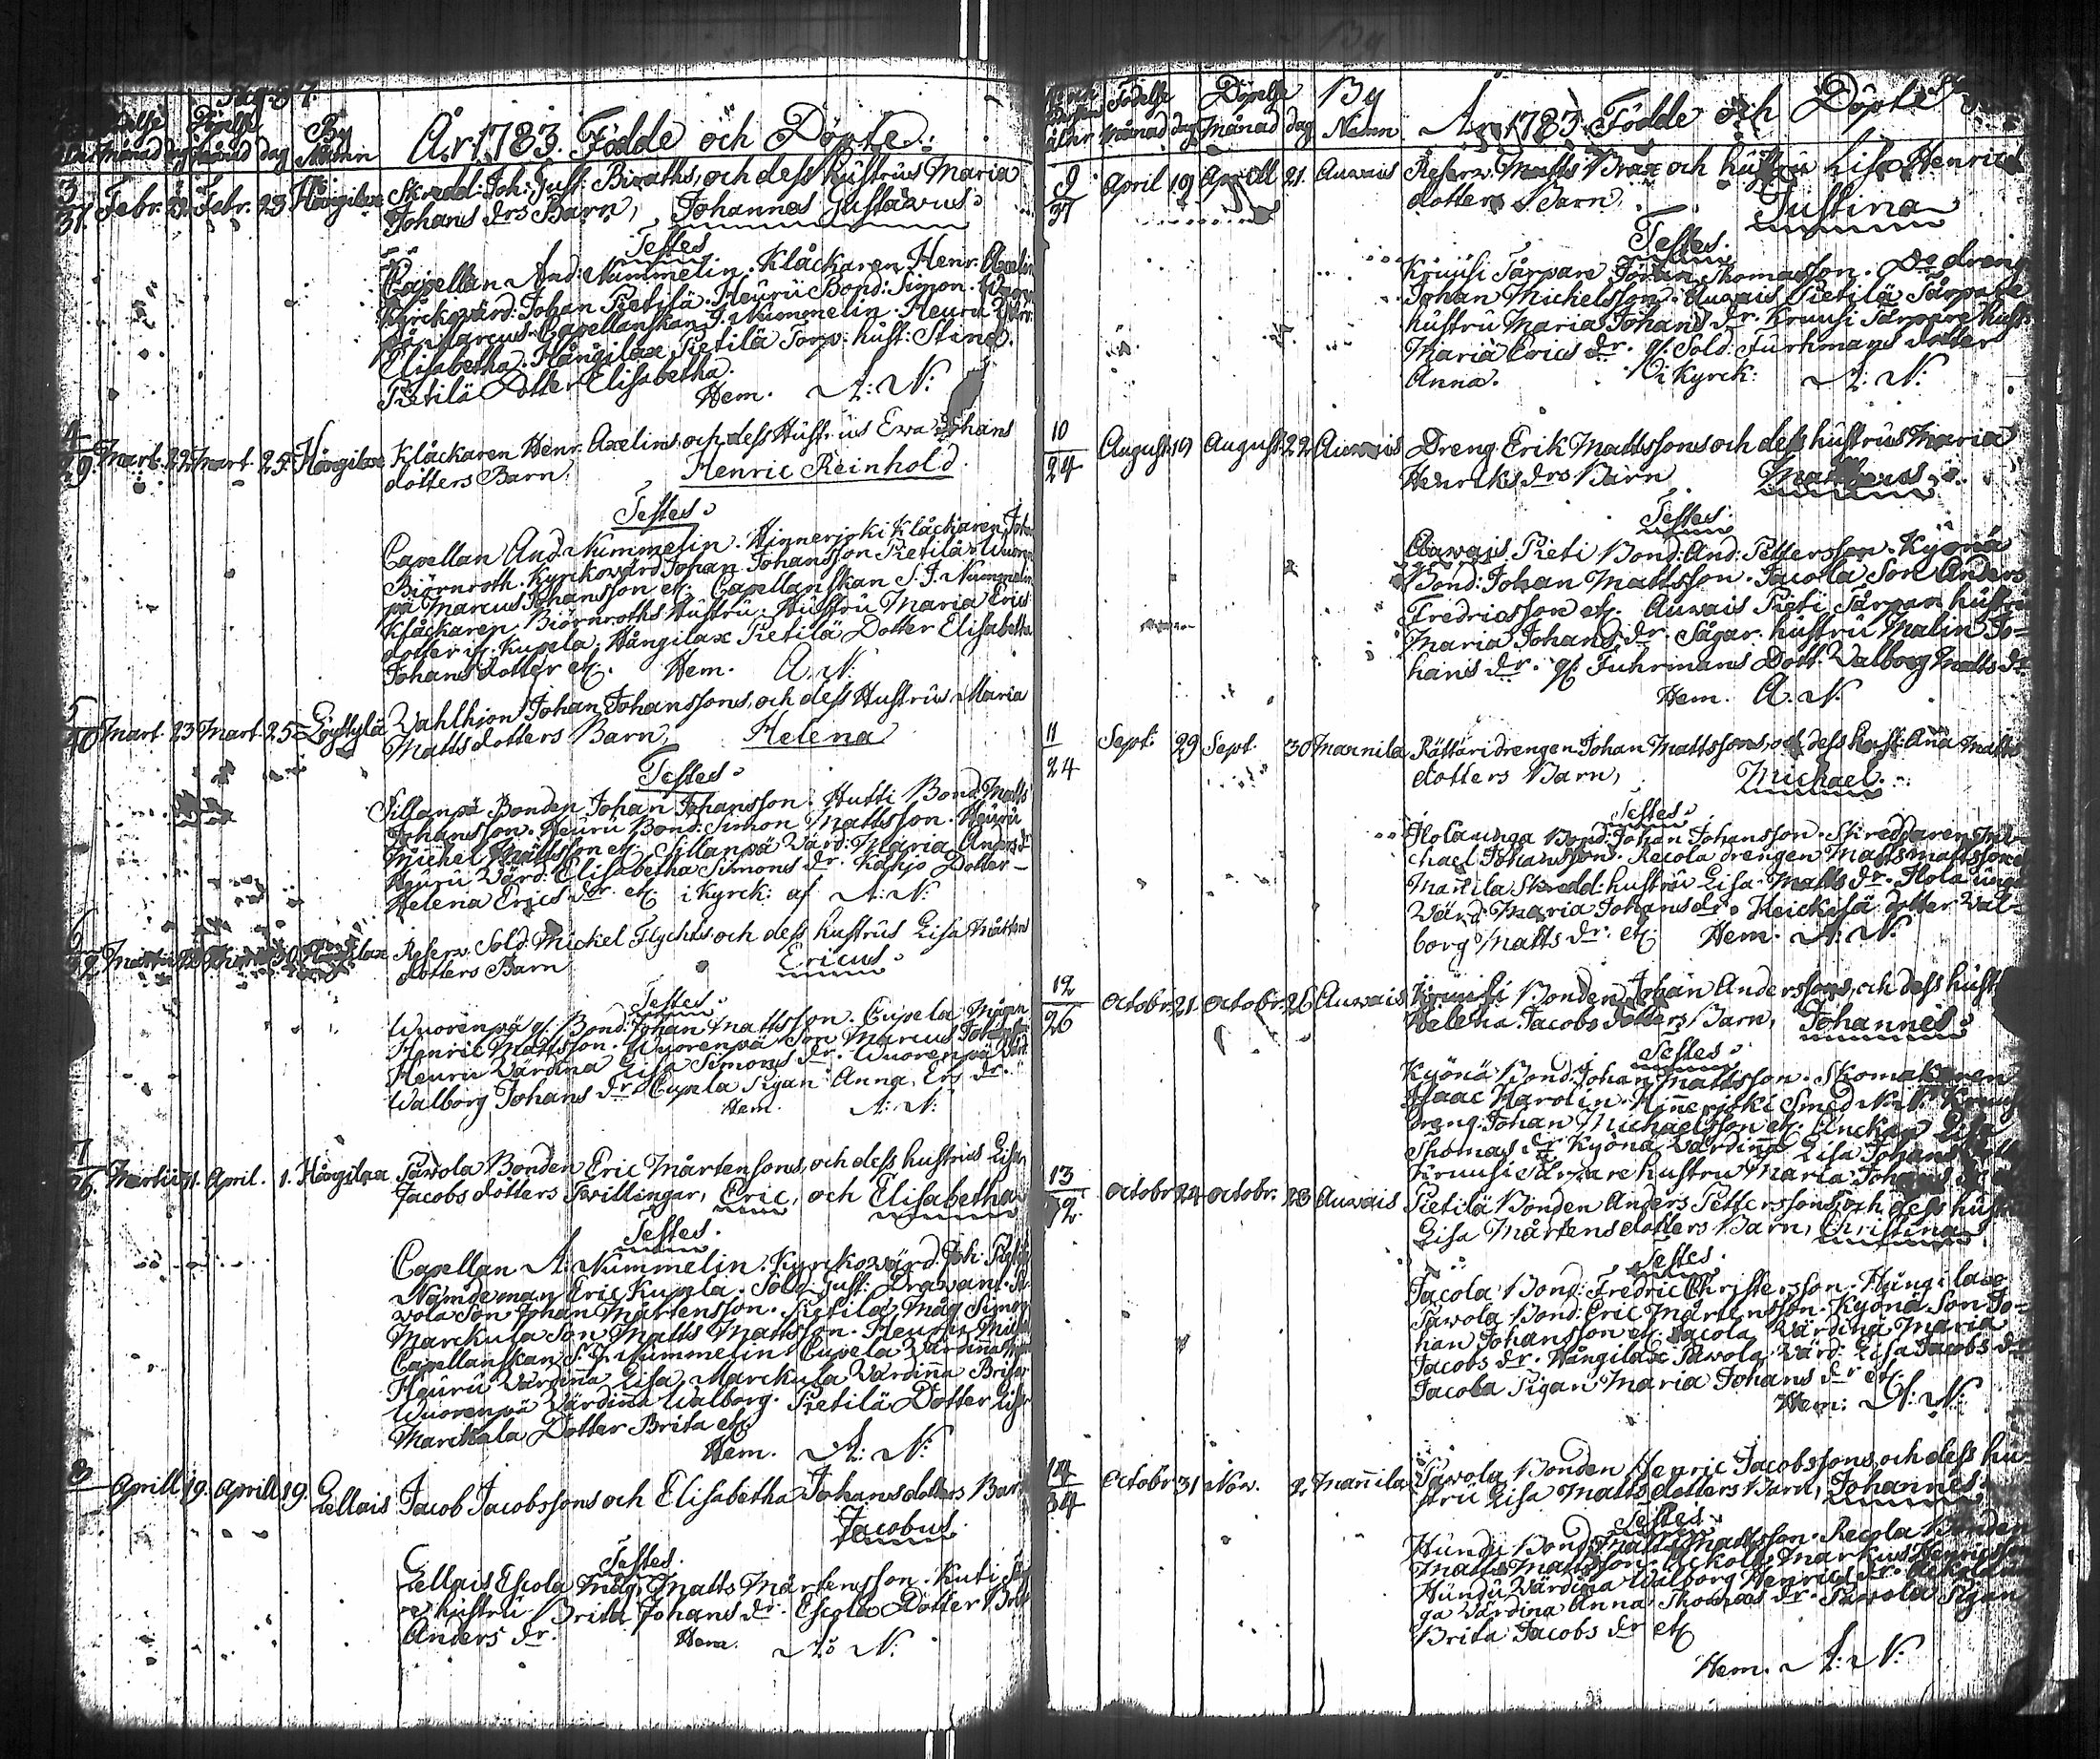 År 1783. Födde och Döpte.
Månad dag Månad dag By Namn
3
37. Febr. Febr. 23. Hångilax Skredd: Joh: Gust: Biraths, och dess hustrus Maria
Johans drs Barn, Johannes Gustavus.
Testes
Capellan And: Nummelin. Klåckaren Henr: Axelin
Kyrckovärd: Johan Pietilä. Heuru Bond: Simon.
Marcus. Capellanskan J. Nummelin. Heuru
Elisabetha. Hångilax Pietilä Torp: hust: Stina.
Pietilä Dotter Elisabetha.
Hem. A: N:
4
Mart. 22 Mart. 25. Hångilax Klåckaren Henr. Axelins och dess Hustrus Ewa Johans
dotters Barn. Henric Reinhold.
Testes
Capellan And. Nummelin. Hinnerjoki Klåckaren Joha
Biörnroth. Kyrckovärd Johan Johansson Pietilä. Wuoren
pä Marcus Johansson etc. Capellanskan S. J. Nummelin
Klåckaren Biörnroths Hustru. Hustru Maria Erics
dotter Kupela. Hångilax Pietilä Dotter Elisabetha
Johans dotter etc. Hem. A. N.
5
Mart. 23 Mart. 25 Löyttylä Wahlhjon Johan Johanssons, och dess Hustrus Maria
Matts dotters Barn, Helena
Testes
Sillanpä Bonden Johan Johansson. Hutti Bond: Matts
Johansson. Heuru Bond: Simon Mattsson. Heuru
Michel Mattsson etc. Sillanpä Värd: Maria Anders dr
Heuru Värd: Elisabetha Simons dr. Kahjo Dotter
Helena Erics dr etc. i Kyrck: af A: N:
6
Reserv. Sold: Mickel Flychts och dess hustrus Lisa Mårten
dotters Barn Ericus
Testes
Wuorenpä Bond: Johan Mattsson. Cupela Mågen
Henric Mattsson. Wuorenpä Son Marcus Johansson
Heuru Värdina Lisa Simons dr. Wuorenpä Värd.
Walborg Johans dr. Cupela Pigan Anna Er: dr.
Hem. A: N:
7
26. Martii 31. April. 1. Hångilax Pawola Bonden Eric Mårtensons, och dess hustrus Lisa
Jacobs dotters Twillingar, Eric, och Elisabetha
Testes.
Capellan A: Nummelin. Kyrckowärd. Joh: Pietilä
Nämdeman Eric Kupela. Sold: Gust: Drawant. Pa
wola Son Johan Mårtensson. Pietilä Måg Simon
Marckula Son Matts Mattsson. Heuru
Capellanskan S. J. Nummelin. Cupela Värdinna
Heuru Värdinna Lisa. Marckula Värdinna Brita
Wuorenpä Värdinna Walborg. Pietilä Dotter Lisa
Marckula Dotter Brita etc.
Hem. A: N:
8
Aprill 19. Aprill 19. Lellais Jacob Jacobssons och Elisabetha Johans dotters Barn
Jacobus
Testes.
Lellais Escola Måg. Matts Mårtensson. Kuti
hustru Brita Johans dr. Escola Dotter
Anders dr. Hem. A: N:
Födelse Döpelse By
Månad dag Månad dag Namn År 1783. Födde och Döpte
9
37 April 19 Aprill 21. Auwais Reserv: Matts Brax och hustru Lisa Henrics
dotters Barn, Justina
Testes.
Kruusi Tårpare Johan Thomasson. Do dreng
Johan Mickelsson. Auwais Pietilä Tårpare
hustru Maria Johans dr. Kruusi Tårpare hust:
Maria Erics dr. Sold: Furhmans dotter
Anna. i Kyrck: A: N:
10
24 August 19 August 22 Auwais Dreng Erik Mattssons och dess hustrus Maria
Henriks drs Barn Matthæus
Testes
Auwais Pieti Bond: And: Pettersson. Kyönä
Bond: Johan Mattsson. Jacola Son Anders
Fredricsson etc. Auwais Pieti Tårpar: hustru
Maria Johans dr. Sågar. hustru Malin Jo-
hans dr. Fuhrmans Dott. Walborg Matts dr
Hem. A. N.
11
24 Sept. 29 Sept. 30 Mannila Rättäridrengen Johan Mattssons, och dess Hust: Ana Matts
dotters Barn, Michael.
Testes
Ilolaunga Bond: Johan Johansson. Skreddaren Mi-
chael Johansson. Recola drengen Matts Mattsson
Mannila Skredd: hustru Lisa Matts dr. Ilola unga
Värd: Maria Johans dr. Heickilä dotter Wal-
borg Matts dr. etc. Hem. A: N:
12
26 Octobr. 21. Octobr. 26 Auwais Kruusi Bonden Johan Anderssons, och dess hust
Helena Jacobs dotters Barn, Johannes
Testes
Kyönä Bond: Johan Mattsson. Skomakaren
Isaac Harolin. Hinnerjoki Smed N. N. Kruus
dreng: Johan Michaelsson etc. Enckan Lisa
Thomas dr. Kyönä Värdinna Lisa Johans
Kruusi Tårpare hustru Maria Johans dr
13
Octobr 24 Octobr. 28 Auwais Pietilä Bonden Anders Petterssons, och dess hust
Lisa Mårtens dotters Barn, Christina
Testes.
Jacola Bond: Fredric Christersson. Hångilax
Pawola Bond: Eric Mårtensson. Kyönä Son Jo-
han Johansson etc. Jacola Värdina Maria
Jacobs dr. Hångilax Pawola Värd: Lisa Jacobs dr
Jacola Pigan Maria Johans dr etc.
Hem: A: N:
14
34 Octobr 31 Nov. 2 Mannila Pawola Bonden Henric Jacobssons, och dess hu-
stru Lisa Matts dotters Barn, Johannes.
Testes
Hundu Bond: Matts Mattsson. Recola Bonden
Matts Mattsson. Markus Henricsson
Hundu Värdina Walborg Henrics dr.
ga Värdina Anna Thomas dr. Pawola Pigan
Brita Jacobs dr etc
Hem. A: N: